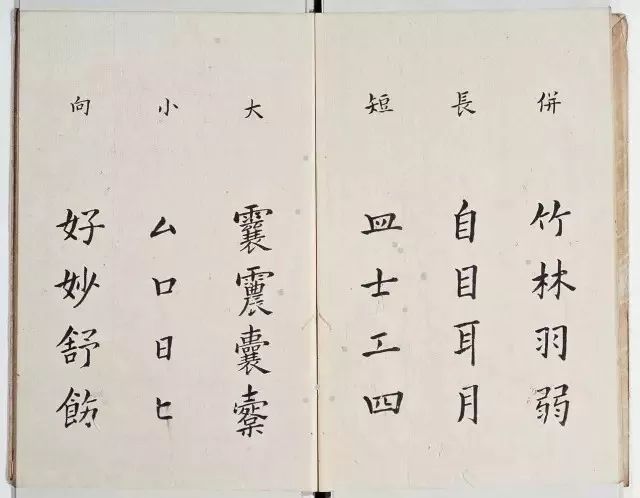 併 竹林羽弱
長 自目耳月
短 皿士工四
大 囊
小 厶口日匕
向 好妙舒飭